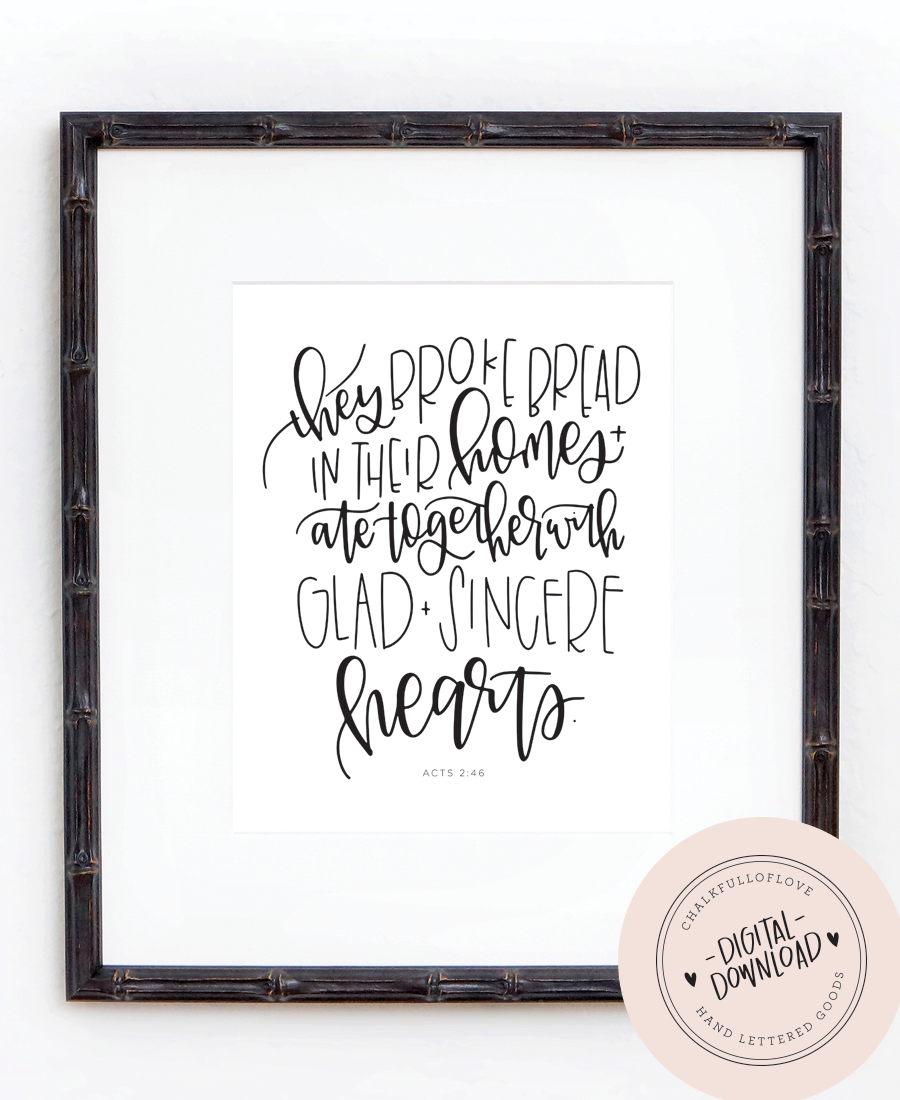 they BROKE BREAD
IN THEIR homes +
ate together with
GLAD + SINCERE
hearts.
ACTS 2:46
CHALKFULOFLOVE
-DIGITAL-
DOWNLOAD
HAND LETTERED GOODS